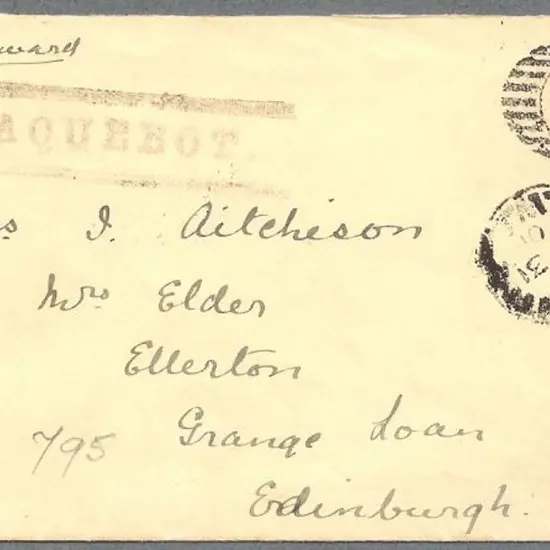 PAQUEBOT.
s I. Aitcheson
Mrs Elder
Ellerton
795 Grange Loan
Edinburgh.